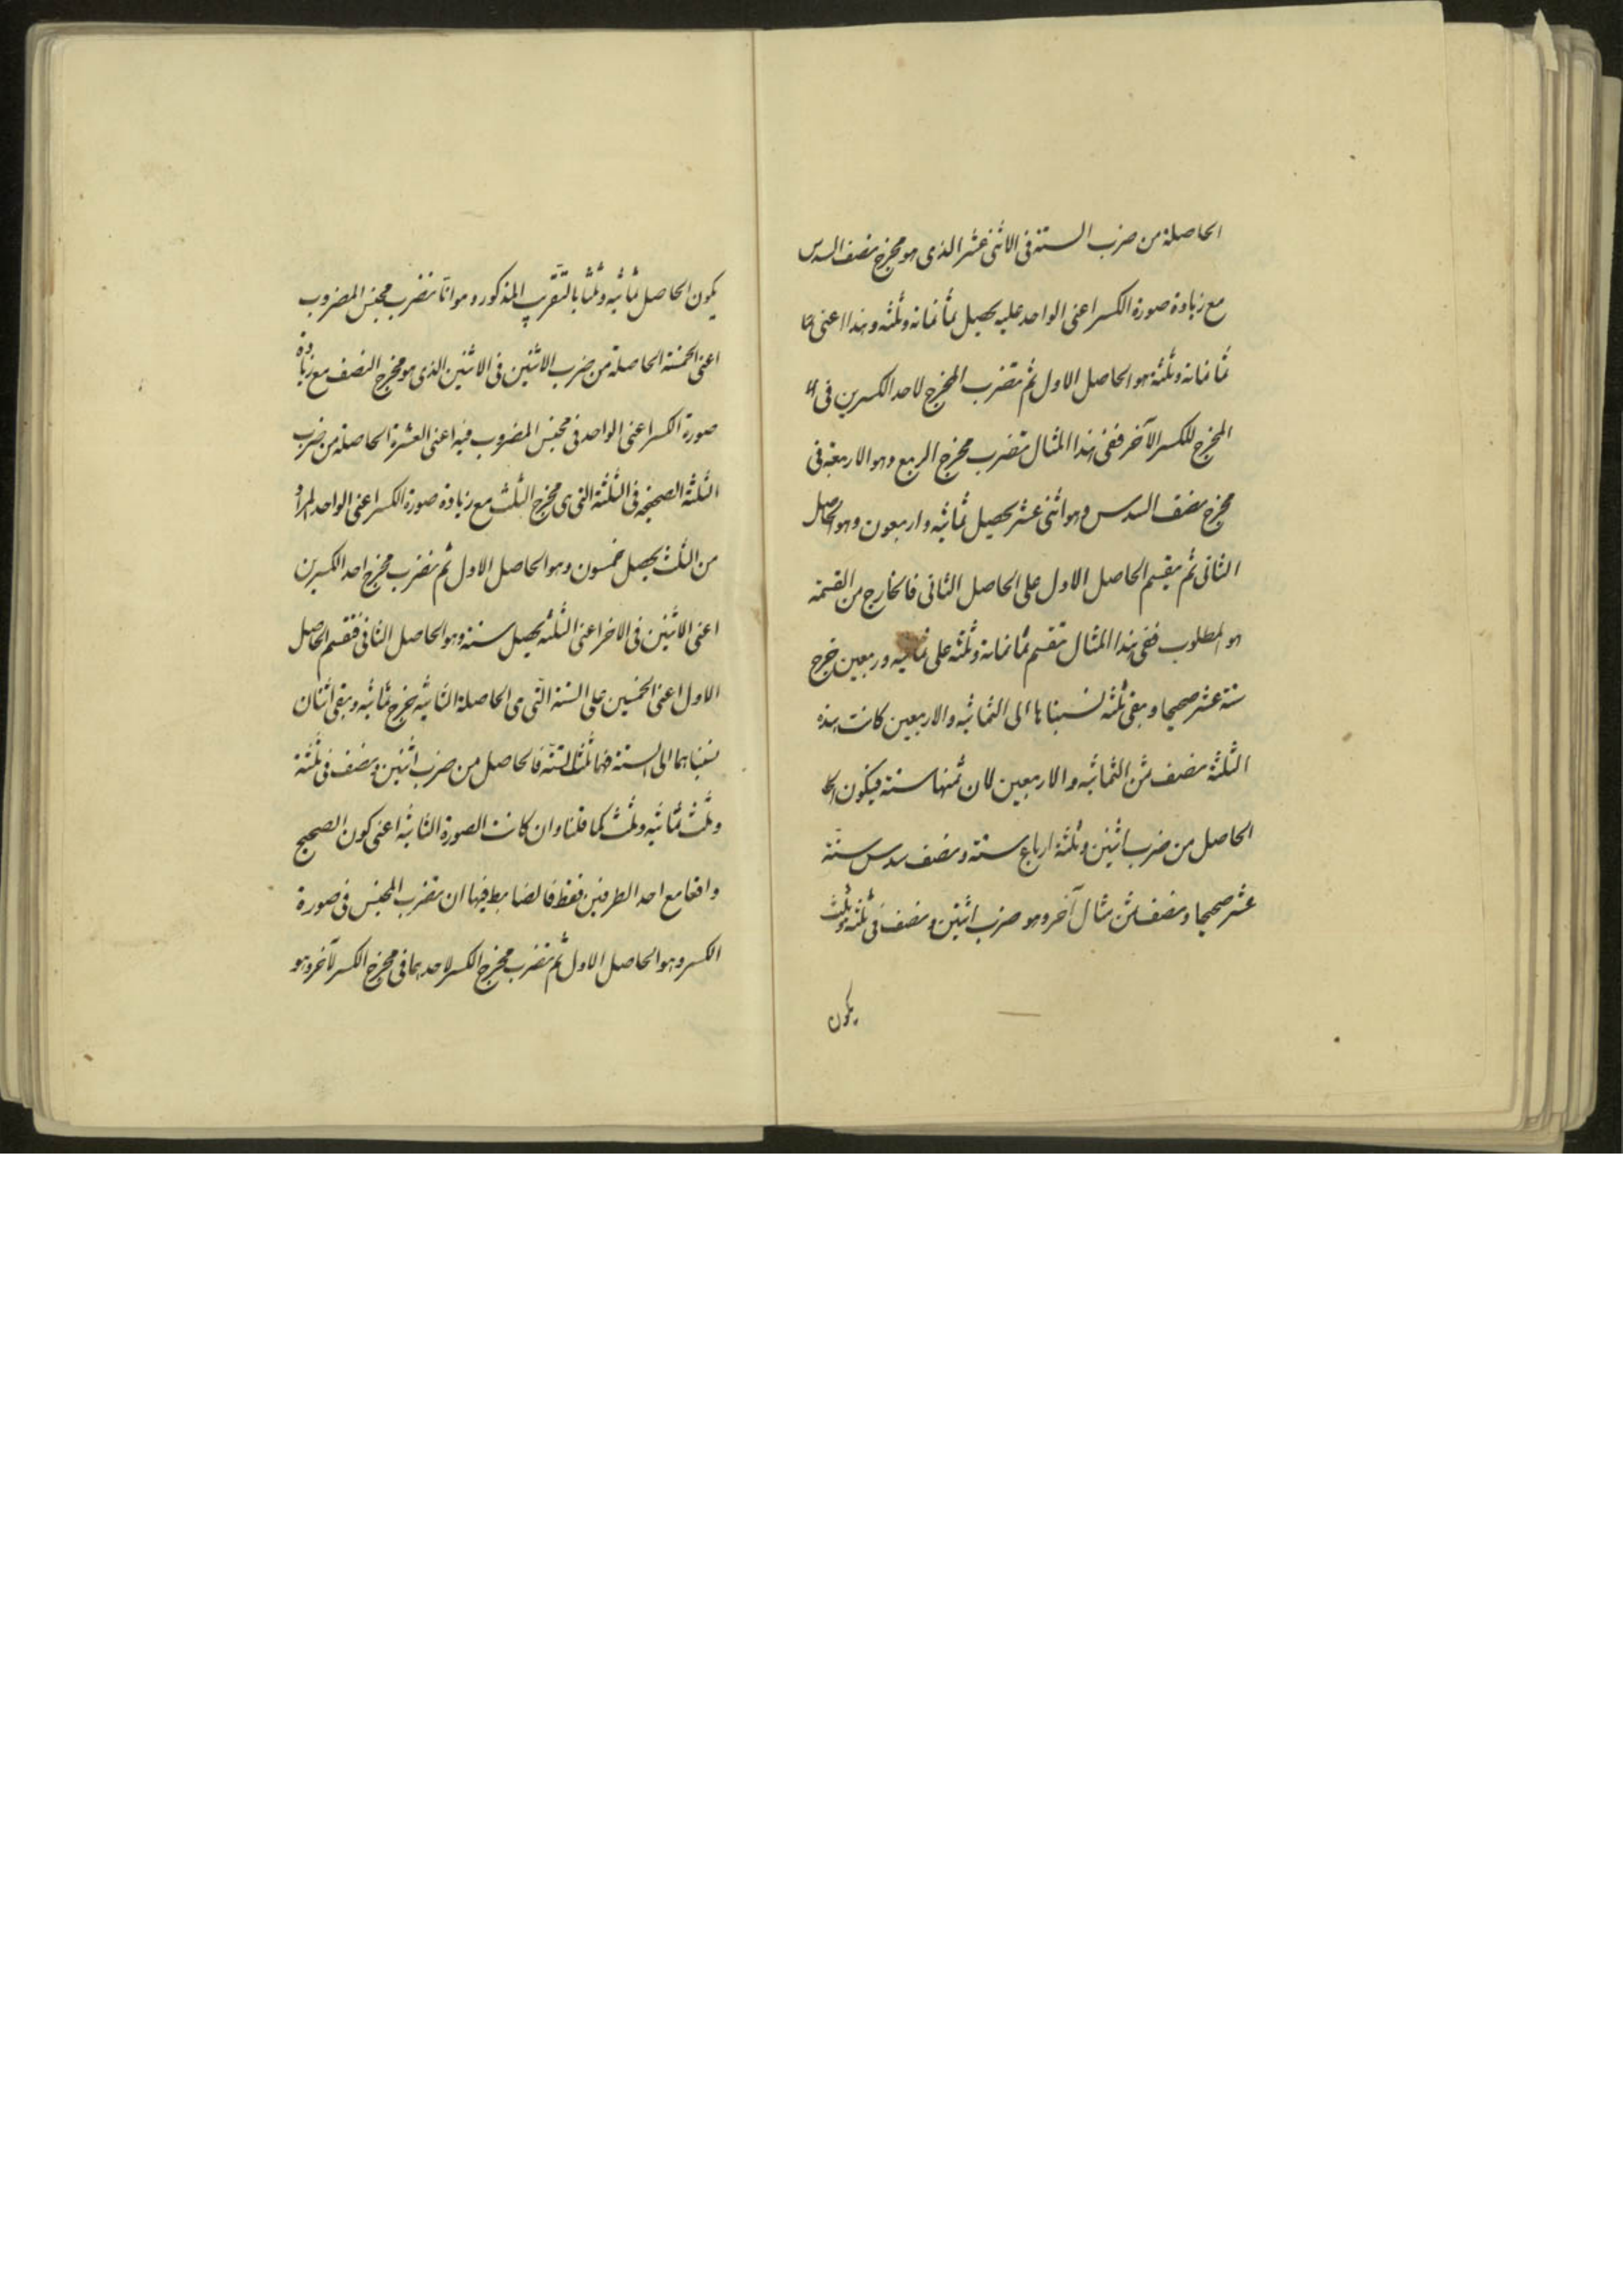 الحاصلة من ضرب الستة فى الاثنى عشر الذى هو مخرج نصف السدس
مع زيادة صورة الكسر اعنى الواحد عليه يحصل ثمانمائة وثلثه وهذا اعنى
ثمانمائة وثلثة هو الحاصل الاول ثم تضرب المخرج لاحد الكسرين فى
المخرج للكسر الآخر ففى هذا المثال تضرب مخرج الربع وهو الاربعة فى
مخرج نصف السدس وهو اثنى عشر يحصل ثمانيه واربعون وهو الحاصل
الثانى ثم يقسم الحاصل الاول على الحاصل الثانى فالخارج من القسمة
هو المطلوب ففى هذا المثال تقسم ثمانمائة وثلثه على ثمانيه وربعين خرج
ستة عشر صحيحا وبقى ثلثه نسبناها الى الثمانيه والاربعين كانت هذه
الثلثة نصف ثمن الثمانيه والاربعين لان ثمنها ستة فيكون
الحاصل من ضرب اثنين وثلثة ارباع ستة ونصف سدس ستة
عشر صحيحا ونصف ثمن مثال آخر وهو ضرب اثنين ونصف فى ثلثه وثلث
يكون
يكون الحاصل ثمانيه وثلثا بالتقرب المذكور وهو انا نضرب مجنس المضروب
اعنى الخمسة الحاصلة من ضرب الاثنين فى الاثنين الذى هو مخرج النصف مع زيادة
صورة الكسر اعنى الواحد فى مجنس المضروب فيه اعنى العشرة الحاصلة من ضرب
الثلثة الصحيحه فى الثلثة التى هى مخرج الثلث مع زيادة صورة الكسر اعنى الواحد المراد
من الثلث يحصل خمسون وهو الحاصل الاول ثم نضرب مخرج احد الكسرين
اعنى الاثنين فى الاخر اعنى الثلثه يحصل ستة وهو الحاصل الثانى فنقسم الحاصل
الاول اعنى الخمسين على الستة التى هى الحاصلة الثانيه يخرج ثمانيه وبقى اثنان
نسبناهما الى الستة فهما ثلثا لستة فالحاصل من ضرب اثنين ونصف فى ثلثة
وثلث ثمانيه وثلث كما قلنا وان كانت الصورة الثانيه اعنى كون الصحيح
واقعا مع احد الطرفين فقط فالضابط فيها ان تضرب المجنس فى صورة
الكسر وهو الحاصل الاول ثم نضرب مخرج الكسر لاحدهما فى مخرج الكسر لآخر وهو